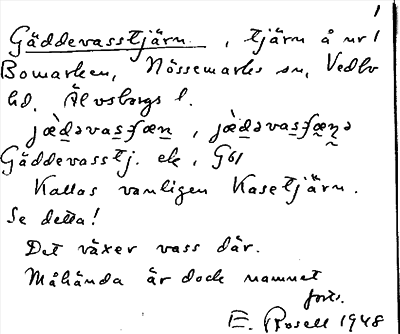 1
Gäddevasstjärn, tjärn å nr 1
Bomarken, Nössemarks sn, Vedbo
hd. Älvsborgs l.
jæ̀dəvasʃæn, jæ̀dəvasʃæṇə
Gäddevasstj. ek, G61
Kallas vanligen Kasetjärn.
Se detta!
Det växer vass där.
Måhända är dock namnet
forts.
E. Rosell 1948